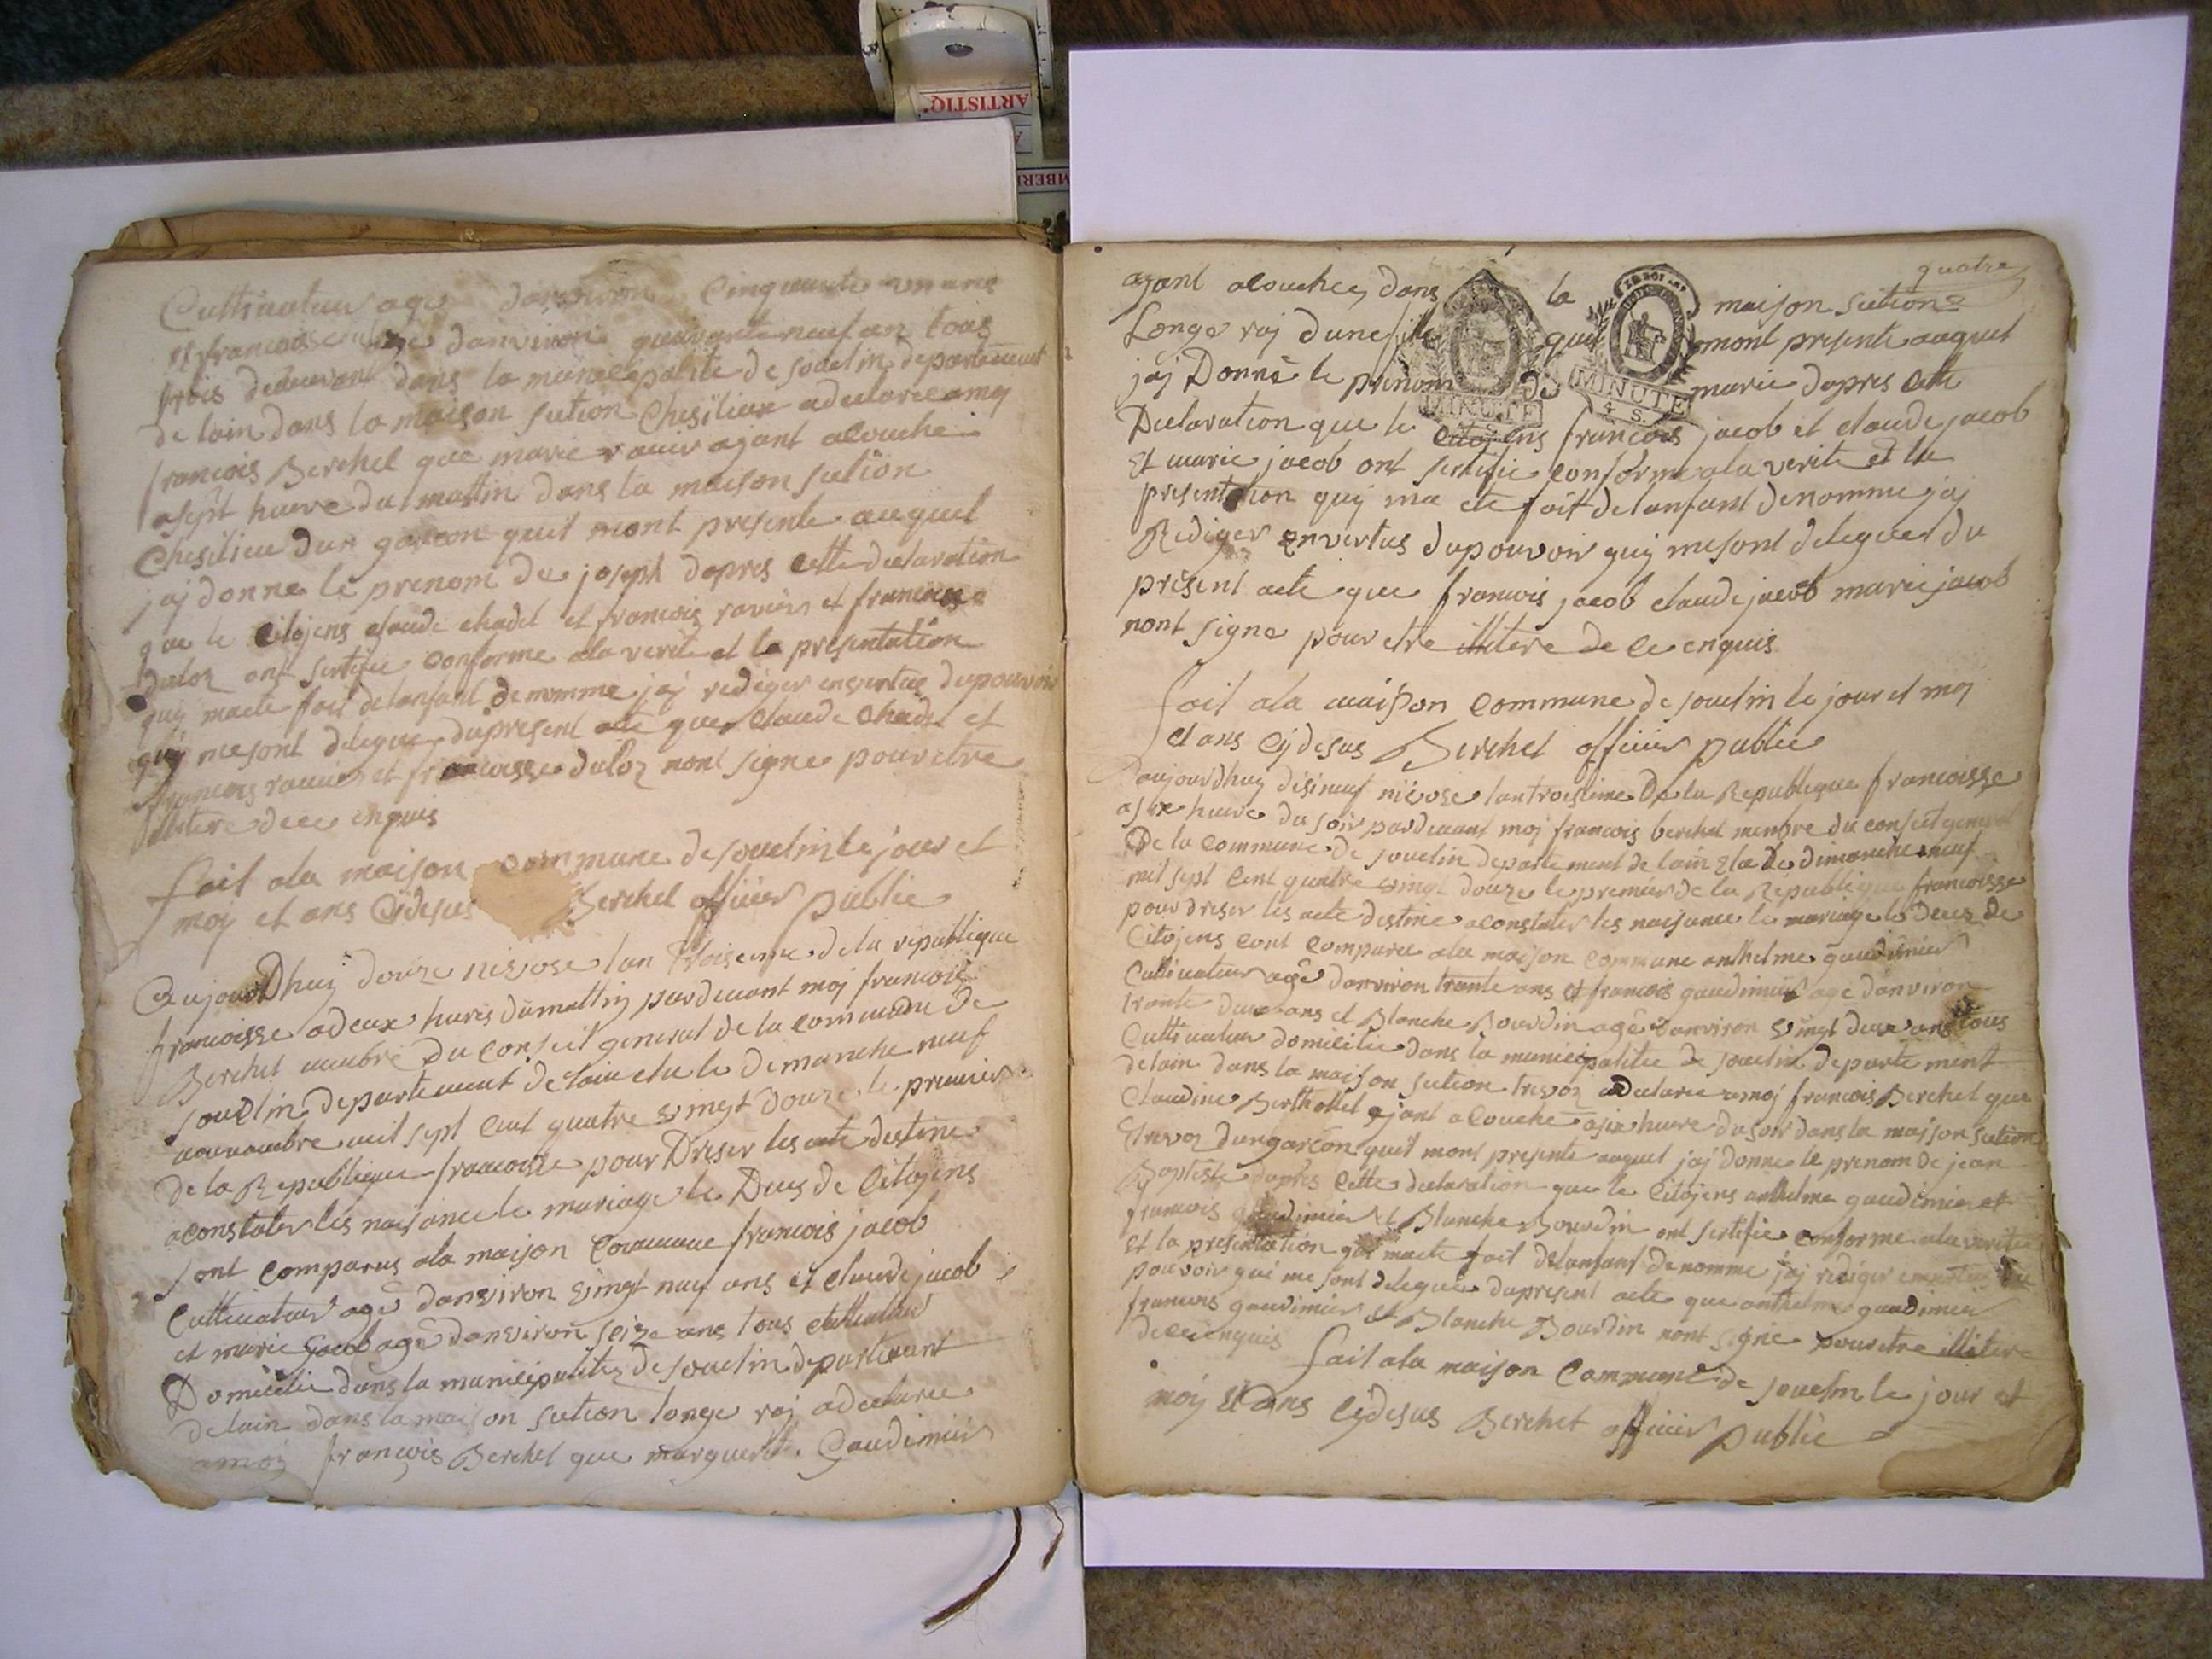 Cultivateur age danviron Cinquante un ans
et francois age danviron quarante neuf an tous
trois demeurant dans la municipalite de souclin departement
de lain dans la maison sution Chesilieux adeclaree amoy
francois Berchet que marie ravier ajant alouche
asept heure du mattin dans la maison sution
Chesilieu dun garcon queil mont presente auquel
jaj donne le prenom de joseph dapres cette declaration
que le Citojens claude chadel et francois ravier et francoisse
duloz ont sertifie conforme ala verite et la presentation
quij macte fait delanfant denomme jaj rediger envertue dupouvoir
quij mesont delegue dupresent acte que claude chadel et
francois ravier et francoisse duloz nont signe pour etre
illitere dece enquis
fait ala maison commune desouclin le jour et
moy et ans Cydesus Berchet officier public
Aujourdhuy douze nivose lan troiseme dela republique
francoisse adeux hures dumattin pardevant moj francois
Berchet membre du conseil general de la commune de
souclin departement de lain elu le demanche neuf
novembre mil sept cent quatre vingt douze le premier
de la Republique francoisse pour Dreser les acte destine
aconstater les naisance le mariage le Deces de Citojens
sont comparus ala maison Commune francois jacob
Cultivateur agê danviron vingt neuf ans et claude jacob
et marie jacob agê danviron seize ans tous cultivateur
Domicilie dans la municipalite de souclin departement
delain dans la maison sution longe raj adeclaree
amoj francois Berchet que marguerite Gaudimier
quatre
ajant alouchez dans la maison sution
Longe raj dune fille quil mont presente auquel
jaj Donnè le prenom de marie dapres cette
MINUTE
MINUTE
4 S.
Declaration que le Citojens francois jacob et claude jacob
et marie jacob ont sertifie conforme ala verite et la
presentation quij ma ete fait delanfant denomme jaj
Rediger envertus dupouvoir quij mesont deleguer du
present acte que francois jacob claude jacob marie jacob
nont signe pour etre illitere de ce enquis
fait ala maison commune de souclin le jour et moj
et ans cydesus Berchet officier public
aujourdhuy disineuf nivose lantroisieme De la Republique francoisse
asix heure du soir pardevant moj francois berchet menbre du conseil general
De la commune de souclin departement de lain elu le dimanche neuf
mil sept cent quatre vingt douze le premier de la Republique francoisse
pour dreser les acte destine aconstater les naisance le mariage le deces de
Citojens sont comparu ala maison commune anthelme gaudimier
Cultivateur agê danviron trante ans et francois gaudimier age danviron
trante deux ans et Blanche Bourdin agê danviron vingt deux ans tous
Cultivateur domicilie dans la municipalitee de souclin departement
delain dans la maison sution trevoz adeclaree amoj francois Berchet que
Claudine Berthollet ajant alouche asix heure dusoir dans la maison sution
trevoz dungarcon queil mont presente auquel jaj donne le prenom de jean
Baptiste dapres cette declaration que le Citojens anthelme gaudimier et
francois gaudimier et Blanche Bourdin ont sertifie conforme ala verite
et la presentation qui macte fait delanfant denomme jaj rediger envertus du
pouvoir qui me sont delegue dupresent acte que anthelme gaudimier
francois gaudimier et Blanche Bourdin nont signe pour etre illitere
de ce enquis fait ala maison Commune de souclin le jour et
moy et ans cydesus Berchet officier public
ARTISTIQ'